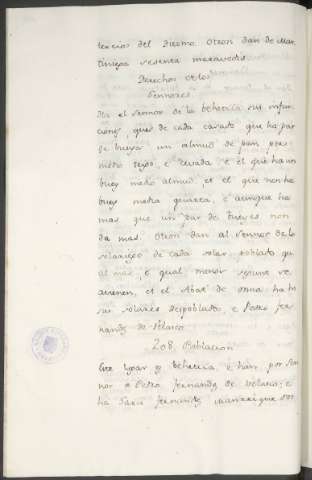 tercios del Diezmo. Otrosi dan de Mar-
tiniega sesenta maravedis.
Derechos de los
Sennores.
Dan al Sennor de la behetria sus infur-
ciones, que es de cada casado que ha par
de bueys un almud de pan por
medio trigo, e cevada, e el que ha un
buey medio almud, et el que non ha
buey media quarta, e aunque ha
mas que un par de bueyes non
da mas. Otrosi dan al Sennor de lo
solariego de cada solar poblado qu
al mas, e qual menos segunt se
avienen, et el Abat de Onna ha hi
sus solares despoblados, e Pedro fer-
nandez de Velasco.
208. Poblacion
Este logar es behetria, e han por Sen
nor a Pedro fernandez de Velasco, e
ha Garci fernandez Manrrique sos